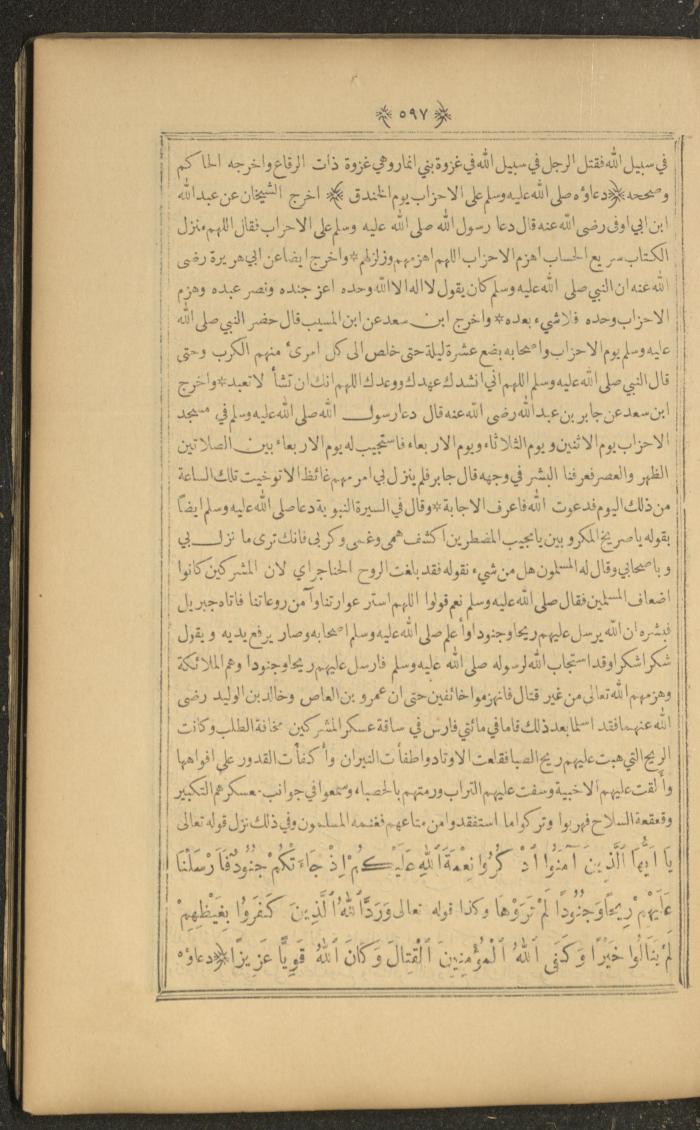 ٥٩٧
في سبيل الله فقتل الرجل في سبيل الله في غزوة بني انمار وهي غزوة ذات الرقاع واخرجه الحاكم
وصححه ﴿ دعاؤه صلى الله عليه وسلم على الاحزاب يوم الخندق ﴾ اخرج الشيخان عن عبدالله
ابن ابي اوفى رضى الله عنه قال دعا رسول الله صلى الله عليه وسلم على الاحزاب فقال اللهم منزل
الكتاب سريع الحساب اهزم الاحزاب اللهم اهزمهم وزلزلهم * واخرج ايضا عن ابي هريرة رضى
الله عنه ان النبي صلى الله عليه وسلم كان يقول لا اله الا الله وحده اعز جنده ونصر عبده وهزم
الاحزاب وحده فلا شيء بعده * واخرج ابن سعد عن ابن المسيب قال حضر النبي صلى الله
عليه وسلم يوم الاحزاب واصحابه بضع عشرة ليلة حتى خلص الى كل امرئ منهم الكرب وحتى
قال النبي صلى الله عليه وسلم اللهم اني انشدك عهدك ووعدك اللهم انك ان تشأ لا تعبد * واخرج
ابن سعد عن جابر بن عبد الله رضى الله عنه قال دعا رسول الله صلى الله عليه وسلم في مسجد
الاحزاب يوم الاثنين ويوم الثلاثاء ويوم الاربعاء فاستجيب له يوم الاربعاء بين الصلاتين
الظهر والعصر فعرفنا البشر في وجهه قال جابر فلم ينزل بي امر مهم غائظ الا توخيت تلك الساعة
من ذلك اليوم فدعوت الله فاعرف الاجابة * وقال في السيرة النبوية دعا صلى الله عليه وسلم ايضاً
بقوله يا صريخ المكروبين يا مجيب المضطرين اكشف همى وغمى وكربى فانك ترى ما نزل بي
وباصحابي وقال له المسلمون هل من شيء نقوله فقد بلغت الروح الحناجر اي لان المشركين كانوا
اضعاف المسلمين فقال صلى الله عليه وسلم نعم قولوا اللهم استر عوراتنا وآمن روعاتنا فاتاه جبريل
فبشره ان الله يرسل عليهم ريحا وجنودا وأعلم صلى الله عليه وسلم اصحابه وصار يرفع يديه ويقول
شكرا شكرا وقد استجاب الله لرسوله صلى الله عليه وسلم فارسل عليهم ريحا وجنودا وهم الملائكة
وهزمهم الله تعالى من غير قتال فانهزموا خائفين حتى ان عمرو بن العاص وخالد بن الوليد رضى
الله عنهما فقد اسلما بعد ذلك قاما في مائتي فارس في ساقة عسكر المشركين مخافة الطلب وكانت
الريح التي هبت عليهم ريح الصبا فقلعت الاوتاد واطفأت النيران وأكفأت القدور على افواهها
وألقت عليهم الاخبية وسفت عليهم التراب ورمتهم بالحصباء وسمعوا في جوانب معسكرهم التكبير
وقعقعة السلاح فهربوا وتركوا ما استفقدوا من متاعهم فغنمه المسلمون وفي ذلك نزل قوله تعالى
يَا أَيُّهَا ٱلَّذِينَ آمَنُوا ٱذْكُرُوا نِعْمَةَ ٱللهِ عَلَيْكُمْ إِذْ جَاءَتْكُمْ جُنُودٌ فَأَرْسَلْنَا
عَلَيْهِمْ رِيحًا وَجُنُودًا لَمْ تَرَوْهَا وكذا قوله تعالى وَرَدَّ ٱللهُ ٱلَّذِينَ كَفَرُوا بِغَيْظِهِمْ
لَمْ يَنَالُوا خَيْرًا وَكَفَى ٱللهُ ٱلْمُؤْمِنِينَ ٱلْقِتَالَ وَكَانَ ٱللهُ قَوِيًّا عَزِيزًا ﴿ دعاؤه